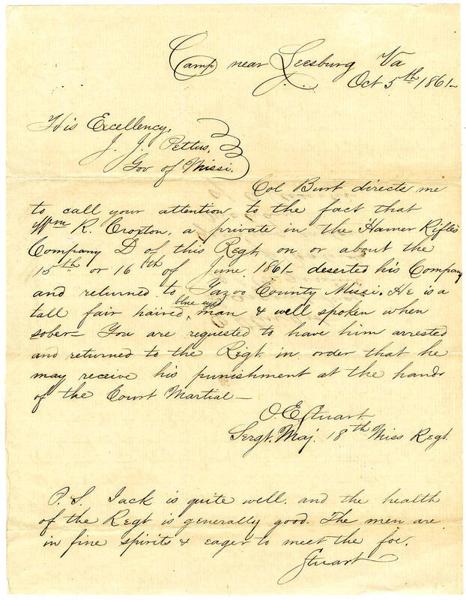 Camp near Leesburg Va
Oct 5th 1861-
His Excellency,
J. J. Pettus,
Gov of Missi.
Col Burt directs me
to call your attention to the fact that
Wm R. Croxton, a private in the Hamer Rifles
Company D of this Regt on or about the
15th or 16th of June 1861- deserted his Company
and returned to Yazoo County Missi. He is a
blue eyed
tall fair haired, man & well spoken when
sober- You are requested to have him arrested
and returned to the Regt in order that he
may receive his punishment at the hands
of the Court Martial-
O. E. Stuart
Sergt. Maj. 18th Miss Regt
P. S. Jack is quite well. and the health
of the Regt is generally good. The men are
in fine spirits & eager to meet the foe.
Stuart